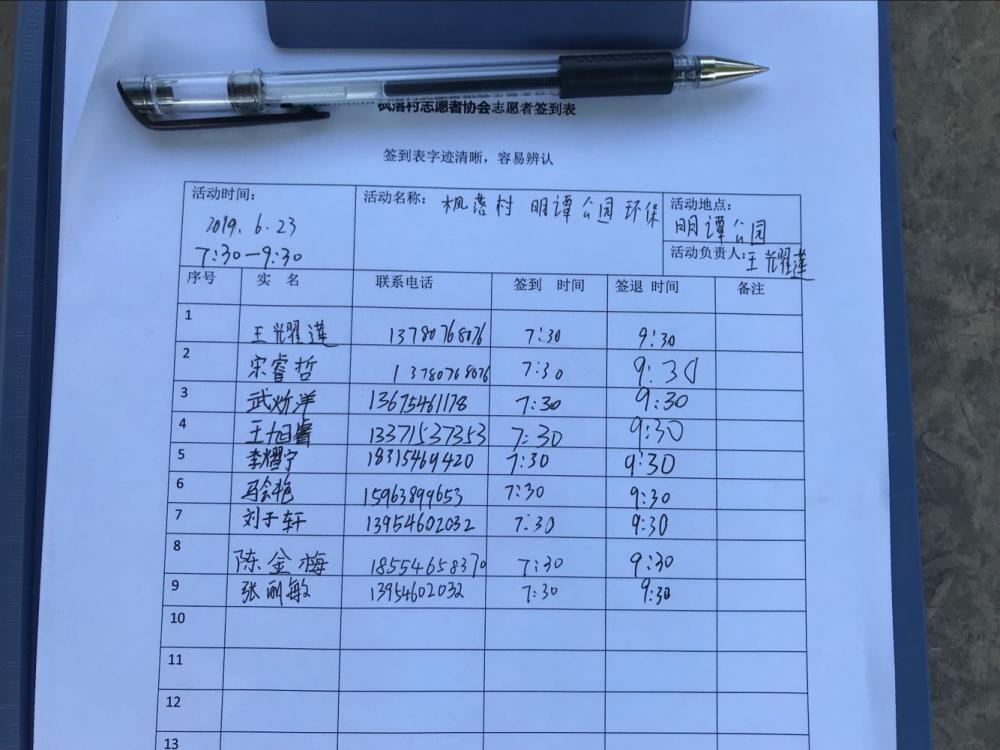 枫落村志愿者协会志愿者签到表
签到表字迹清晰，容易辨认
活动时间： 活动名称：枫落村 明谭公园环保 活动地点：
2019.6.23 明谭公园
7:30—9:30 活动负责人：王光耀莲
序号 实 名 联系电话 签到 时间 签退 时间 备注
1 王光耀莲 13780768076 7:30 9:30
2 宋睿哲 13780768076 7:30 9:30
3 武炘洋 13675461178 7:30 9:30
4 王旭睿 13371537353 7:30 9:30
5 李熠宁 18315469420 7:30 9:30
6 马会艳 15963899653 7:30 9:30
7 刘子轩 13954602032 7:30 9:30
8 陈金梅 18554658370 7:30 9:30
9 张丽敏 13954602032 7:30 9:30
10
11
12
13